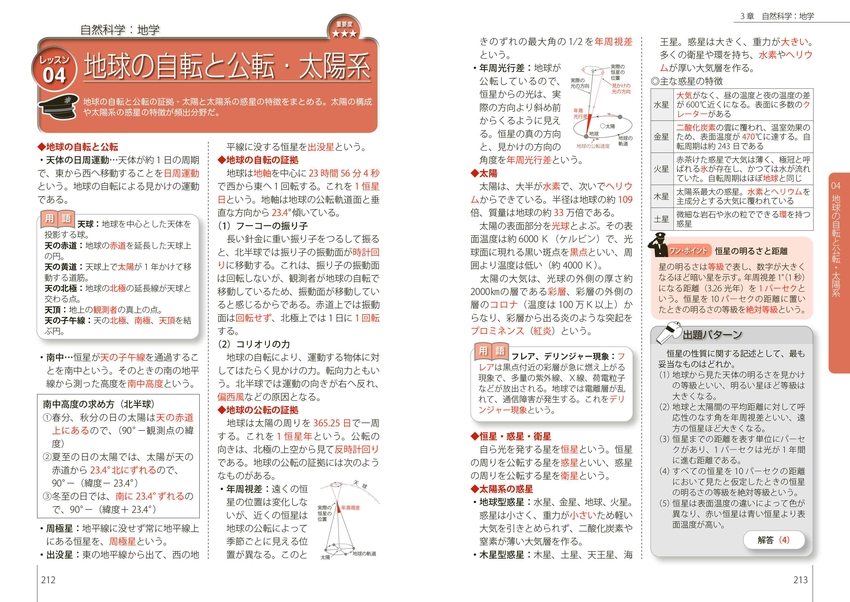 自然科学：地学
重要度
★★★
レッスン
04
地球の自転と公転・太陽系
地球の自転と公転の証拠・太陽と太陽系の惑星の特徴をまとめる。太陽の構成
や太陽系の惑星の特徴が頻出分野だ。
◆地球の自転と公転
・天体の日周運動…天体が約１日の周期
で、東から西へ移動することを日周運動
という。地球の自転による見かけの運動
である。
用語
天球：地球を中心とした天体を
投影する球。
天の赤道：地球の赤道を延長した天球上
の円。
天の黄道：天球上で太陽が１年かけて移
動する道筋。
天の北極：地球の北極の延長線が天球と
交わる点。
天頂：地上の観測者の真上の点。
天の子午線：天の北極、南極、天頂を結
ぶ円。
・南中…恒星が天の子午線を通過するこ
とを南中という。そのときの南の地平
線から測った高度を南中高度という。
南中高度の求め方（北半球）
①春分、秋分の日の太陽は天の赤道
上にあるので、（90°－観測点の緯
度）
②夏至の日の太陽では、太陽が天の
赤道から 23.4°北にずれるので、
90°－（緯度－ 23.4°）
③冬至の日では、南に 23.4°ずれるの
で、90°－（緯度＋ 23.4°）
・周極星：地平線に没せず常に地平線上
にある恒星を、周極星という。
・出没星：東の地平線から出て、西の地
平線に没する恒星を出没星という。
◆地球の自転の証拠
地球は地軸を中心に 23 時間 56 分 4
秒で西から東へ１回転する。これを 1 恒星
日という。地軸は地球の公転軌道面と垂
直な方向から 23.4°傾いている。
（1）フーコーの振り子
長い針金に重い振り子をつるして振る
と、北半球では振り子の振動面が時計回
りに移動する。これは、振り子の振動面
は回転しないが、観測者が地球の自転で
移動しているため、振動面が移動してい
ると感じるからである。赤道上では振動
面は回転せず、北極上では 1 日に 1 回転
する。
（2）コリオリの力
地球の自転により、運動する物体に対
してはたらく見かけの力。転向力ともい
う。北半球では運動の向きが右へ反れ、
偏西風などの原因となる。
◆地球の公転の証拠
地球は太陽の周りを 365.25 日で一周
する。これを 1 恒星年という。公転の
向きは、北極の上空から見て反時計回り
である。地球の公転の証拠には次のよう
なものがある。
・年周視差：遠くの恒
星の位置は変化しな
いが、近くの恒星は
地球の公転によって
季節ごとに見える位
置が異なる。このと
天球
実際の
恒星の
位置
年周視差
太陽
地球の軌道
212
3 章　自然科学：地学
きのずれの最大角の 1/2 を年周視差
という。
・年周光行差：地球が
公転しているので、
恒星からの光は、実
際の方向より斜め前
からくるように見え
る。恒星の真の方向
と、見かけの方向の
角度を年周光行差という。
実際の
恒星の
位置
実際の
光の方向
見かけの
光の方向
年周
光行差
太陽
地球
地球の公転速度
地球の
軌道
◆太陽
太陽は、大半が水素で、次いでヘリウ
ムからできている。半径は地球の約 109
倍、質量は地球の約 33 万倍である。
太陽の表面部分を光球とよぶ。その表
面温度は約 6000 K（ケルビン）で、光
球面に現れる黒い斑点を黒点といい、周
囲より温度は低い（約 4000 K）。
太陽の大気は、光球の外側の厚さ約
2000㎞の層である彩層、彩層の外側の
層のコロナ（温度は 100 万 K 以上）か
らなり、彩層から出る炎のような突起を
プロミネンス（紅炎）という。
用語
フレア、デリンジャー現象：フ
レアは黒点付近の彩層が急に燃え上がる
現象で、多量の紫外線、X 線、荷電粒子
などが放出される。地球では電離層が乱
れて、通信障害が発生する。これをデリ
ンジャー現象という。
◆恒星・惑星・衛星
自ら光を発する星を恒星という。恒星
の周りを公転する星を惑星といい、惑星
の周りを公転する星を衛星という。
◆太陽系の惑星
・地球型惑星：水星、金星、地球、火星。
惑星は小さく、重力が小さいため軽い
大気を引きとめられず、二酸化炭素や
窒素が薄い大気層を作る。
・木星型惑星：木星、土星、天王星、海
王星。惑星は大きく、重力が大きい。
多くの衛星や環を持ち、水素やヘリウ
ムが厚い大気層を作る。
◎主な惑星の特徴
水星　大気がなく、昼の温度と夜の温度の差
が 600℃近くになる。表面に多数のク
レーターがある
金星　二酸化炭素の雲に覆われ、温室効果の
ため、表面温度が 470℃に達する。自
転周期は約 243 日である
火星　赤茶けた惑星で大気は薄く、極冠と呼
ばれる氷が存在し、かつては水が流れ
ていた。自転周期はほぼ地球と同じ
木星　太陽系最大の惑星。水素とヘリウムを
主成分とする大気に覆われている
土星　微細な岩石や氷の粒でできる環を持つ
惑星
ワン・ポイント　恒星の明るさと距離
星の明るさは等級で表し、数字が大きく
なるほど暗い星を示す。年周視差 1″（1 秒）
になる距離（3.26 光年）を 1 パーセクと
いう。恒星を 10 パーセクの距離に置い
たときの明るさの等級を絶対等級という。
出題パターン
恒星の性質に関する記述として、最も
妥当なものはどれか。
（1）地球から見た天体の明るさを見かけ
の等級といい、明るい星ほど等級は
大きくなる。
（2）地球と太陽間の平均距離に対して呼
応性のなす角を年周視差といい、遠
方の恒星ほど大きくなる。
（3）恒星までの距離を表す単位にパーセ
クがあり、1 パーセクは光が 1 年間
に進む距離である。
（4）すべての恒星を 10 パーセクの距離
において見たと仮定したときの恒星
の明るさの等級を絶対等級という。
（5）恒星は表面温度の違いによって色が
異なり、赤い恒星は青い恒星より表
面温度が高い。
解答（4）
04
地球の自転と公転・太陽系
213